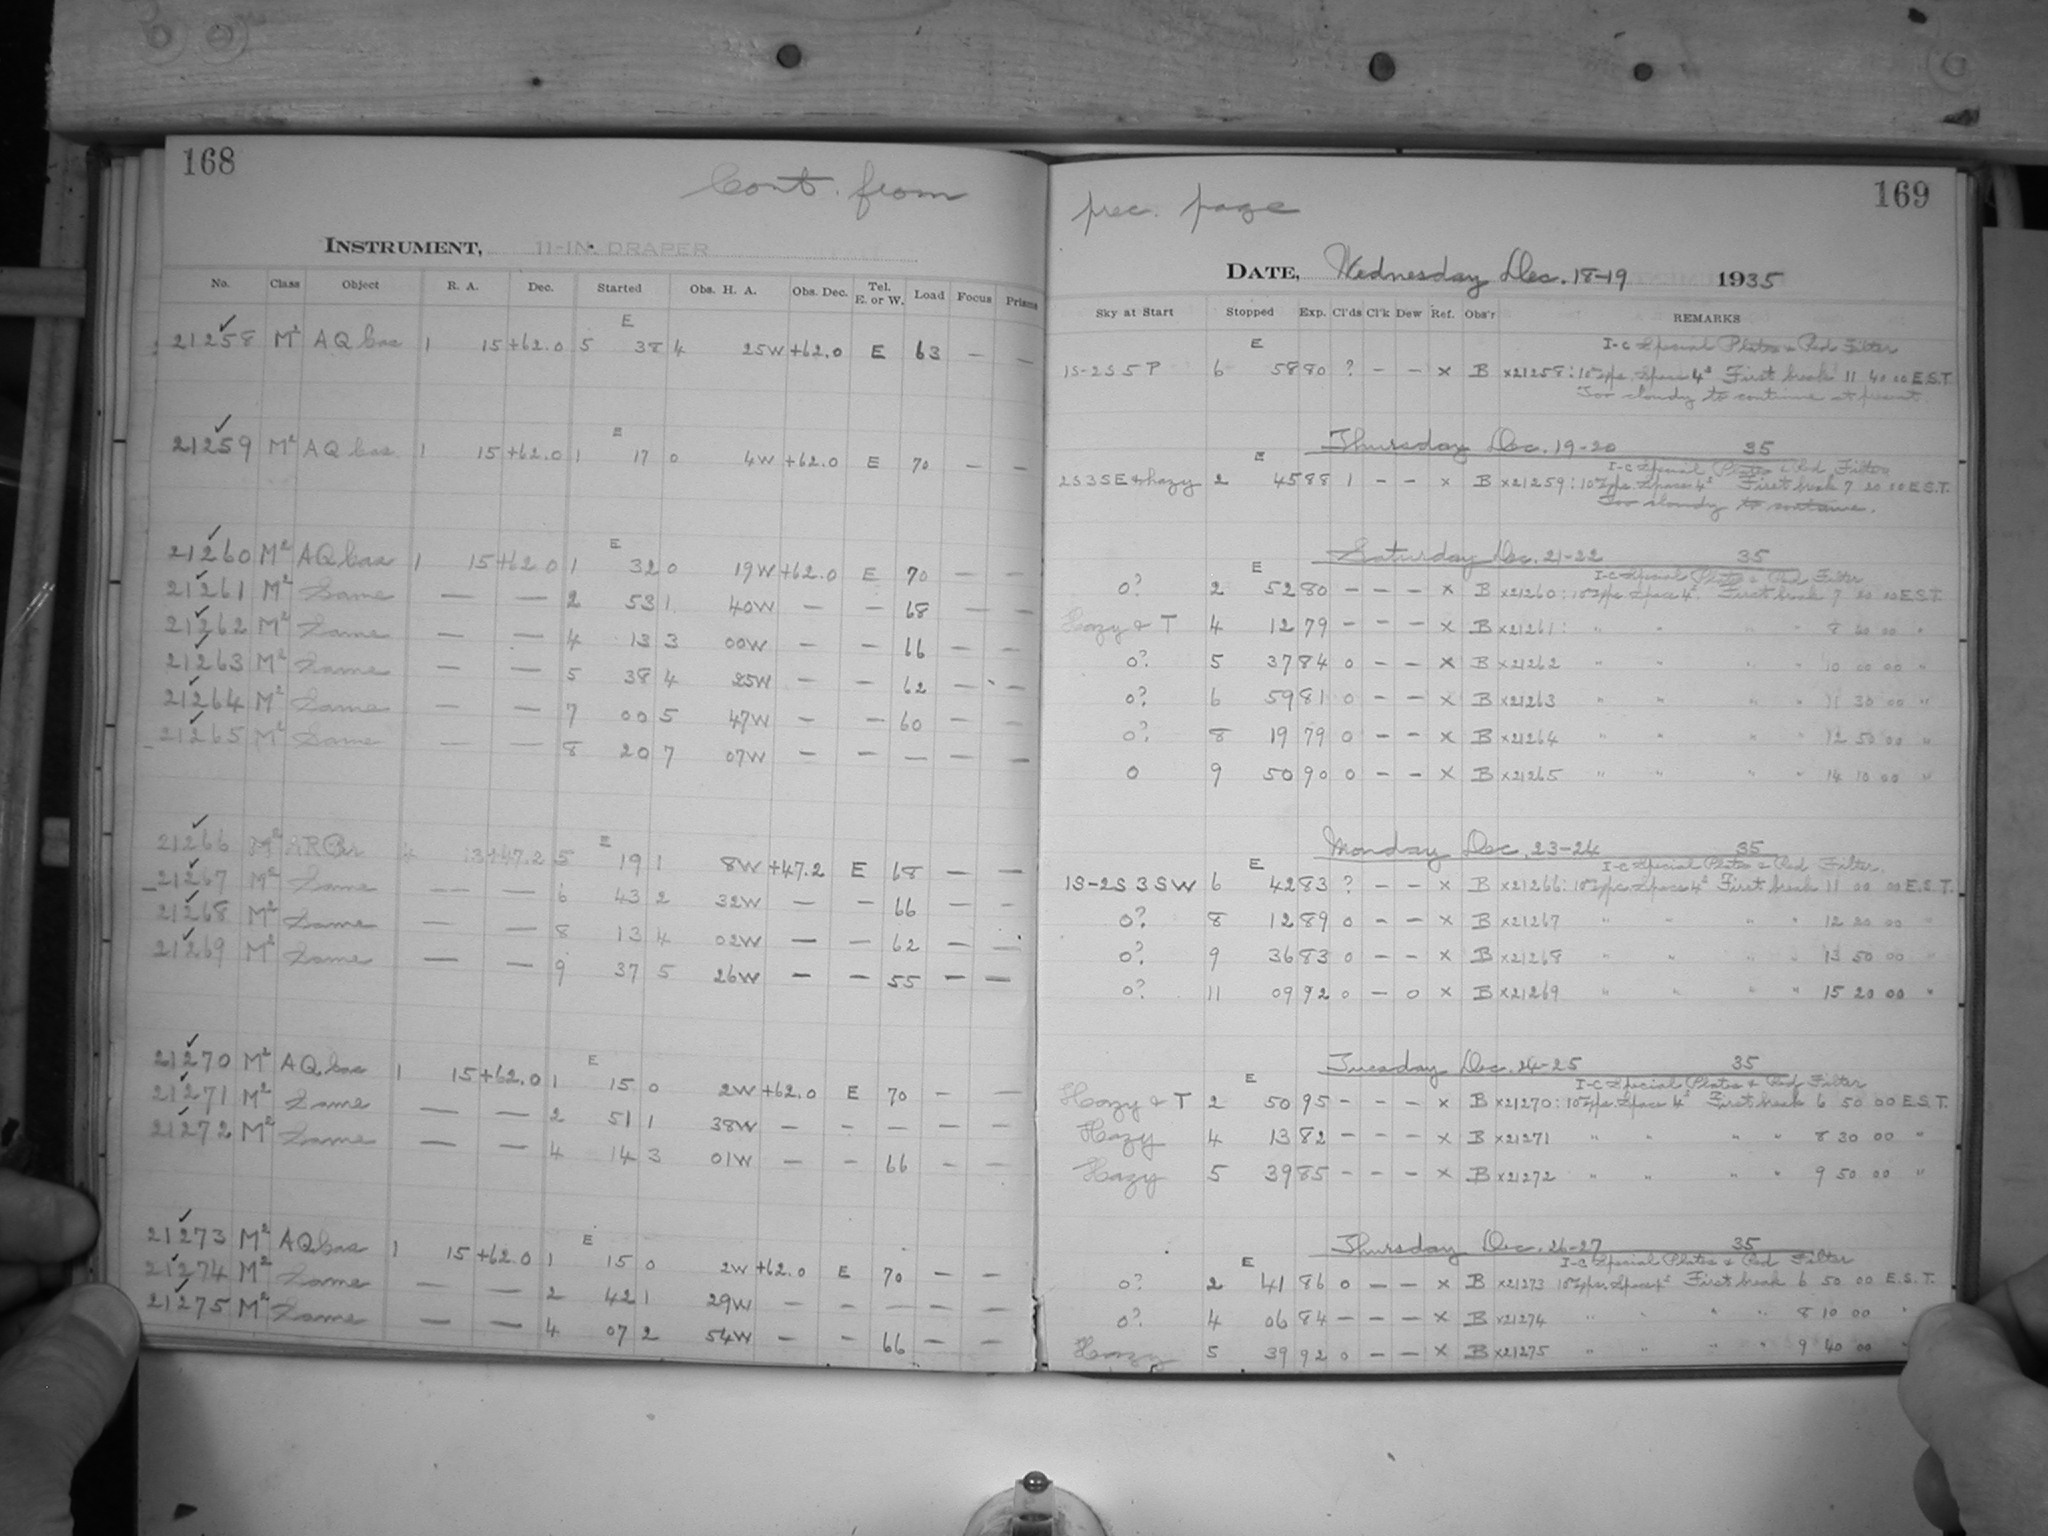 168
Cont. from
INSTRUMENT, 11-IN. DRAPER
No. Class Object R. A. Dec. Started Obs. H. A. Obs. Dec. Tel. E. or W. Load Focus Prisms
E
21258 M² AQ Cas 1 15 +62.0 5 38 4 25W +62.0 E 63 — —
E
21259 M² AQ Cas 1 15 +62.0 1 17 0 4W +62.0 E 70 — —
E
21260 M² AQ Cas 1 15 +62.0 1 32 0 19W +62.0 E 70 — —
21261 M² Same — — 2 53 1 40W — — 68 — —
21262 M² Same — — 4 13 3 00W — — 66 — —
21263 M² Same — — 5 38 4 25W — — 62 — —
21264 M² Same — — 7 00 5 47W — — 60 — —
21265 M² Same — — 8 20 7 07W — — — — —
E
21266 M² +47.2 5 19 1 8W +47.2 E 68 — —
21267 M² Same — — 6 43 2 32W — — 66 — —
21268 M² Same — — 8 13 4 02W — — 62 — —
21269 M² Same — — 9 37 5 26W — — 55 — —
E
21270 M² AQ Cas 1 15 +62.0 1 15 0 2W +62.0 E 70 — —
21271 M² Same — — 2 51 1 38W — — — — —
21272 M² Same — — 4 14 3 01W — — 66 — —
E
21273 M² AQ Cas 1 15 +62.0 1 15 0 2W +62.0 E 70 — —
21274 M² Same — — 2 42 1 29W — — — — —
21275 M² Same — — 4 07 2 54W — — 66 — —
169
prec. page
DATE, Wednesday Dec. 18-19 1935
Sky at Start Stopped Exp. Cl'ds Cl'k Dew Ref. Obs'r REMARKS
E I-C Special Plates & Red Filter
1S-2S 5 P 6 58 80 ? — — × B ×21258: 10 Exps. Space 4ˢ First break 11 40 00 E.S.T.
Too cloudy to continue at present.
Thursday Dec. 19-20 35
E I-C Special Plates & Red Filter
2S3SE & hazy 2 45 88 1 — — × B ×21259: 10 Exps. Space 4ˢ First break 7 20 00 E.S.T.
Too cloudy to continue.
Saturday Dec. 21-22 35
E I-C Special Plates & Red Filter
0? 2 52 80 — — — × B ×21260: 10 Exps. Space 4ˢ First break 7 20 00 E.S.T.
Hazy & T 4 12 79 — — — × B ×21261: " " " " 8 40 00 "
0? 5 37 84 0 — — × B ×21262 " " " " 10 00 00 "
0? 6 59 81 0 — — × B ×21263 " " " " 11 30 00 "
0? 8 19 79 0 — — × B ×21264 " " " " 12 50 00 "
0 9 50 90 0 — — × B ×21265 " " " " 14 10 00 "
Monday Dec. 23-24 35
E I-C Special Plates & Red Filter.
1S-2S 3 SW 6 42 83 ? — — × B ×21266: 10 Exps. Space 4ˢ First break 11 00 00 E.S.T.
0? 8 12 89 0 — — × B ×21267 " " " " 12 20 00 "
0? 9 36 83 0 — — × B ×21268 " " " " 13 50 00 "
0? 11 09 92 0 — 0 × B ×21269 " " " " 15 20 00 "
Tuesday Dec. 24-25 35
E I-C Special Plates & Red Filter
Hazy & T 2 50 95 — — — × B ×21270: 10 Exps. Space 4ˢ First break 6 50 00 E.S.T.
Hazy 4 13 82 — — — × B ×21271 " " " " 8 30 00 "
Hazy 5 39 85 — — — × B ×21272 " " " " 9 50 00 "
Thursday Dec. 26-27 35
E I-C Special Plates & Red Filter
0? 2 41 86 0 — — × B ×21273 10 Exps. Space 4ˢ First break 6 50 00 E.S.T.
0? 4 06 84 — — — × B ×21274 " " " " 8 10 00 "
Hazy 5 39 92 0 — — × B ×21275 " " " " 9 40 00 "